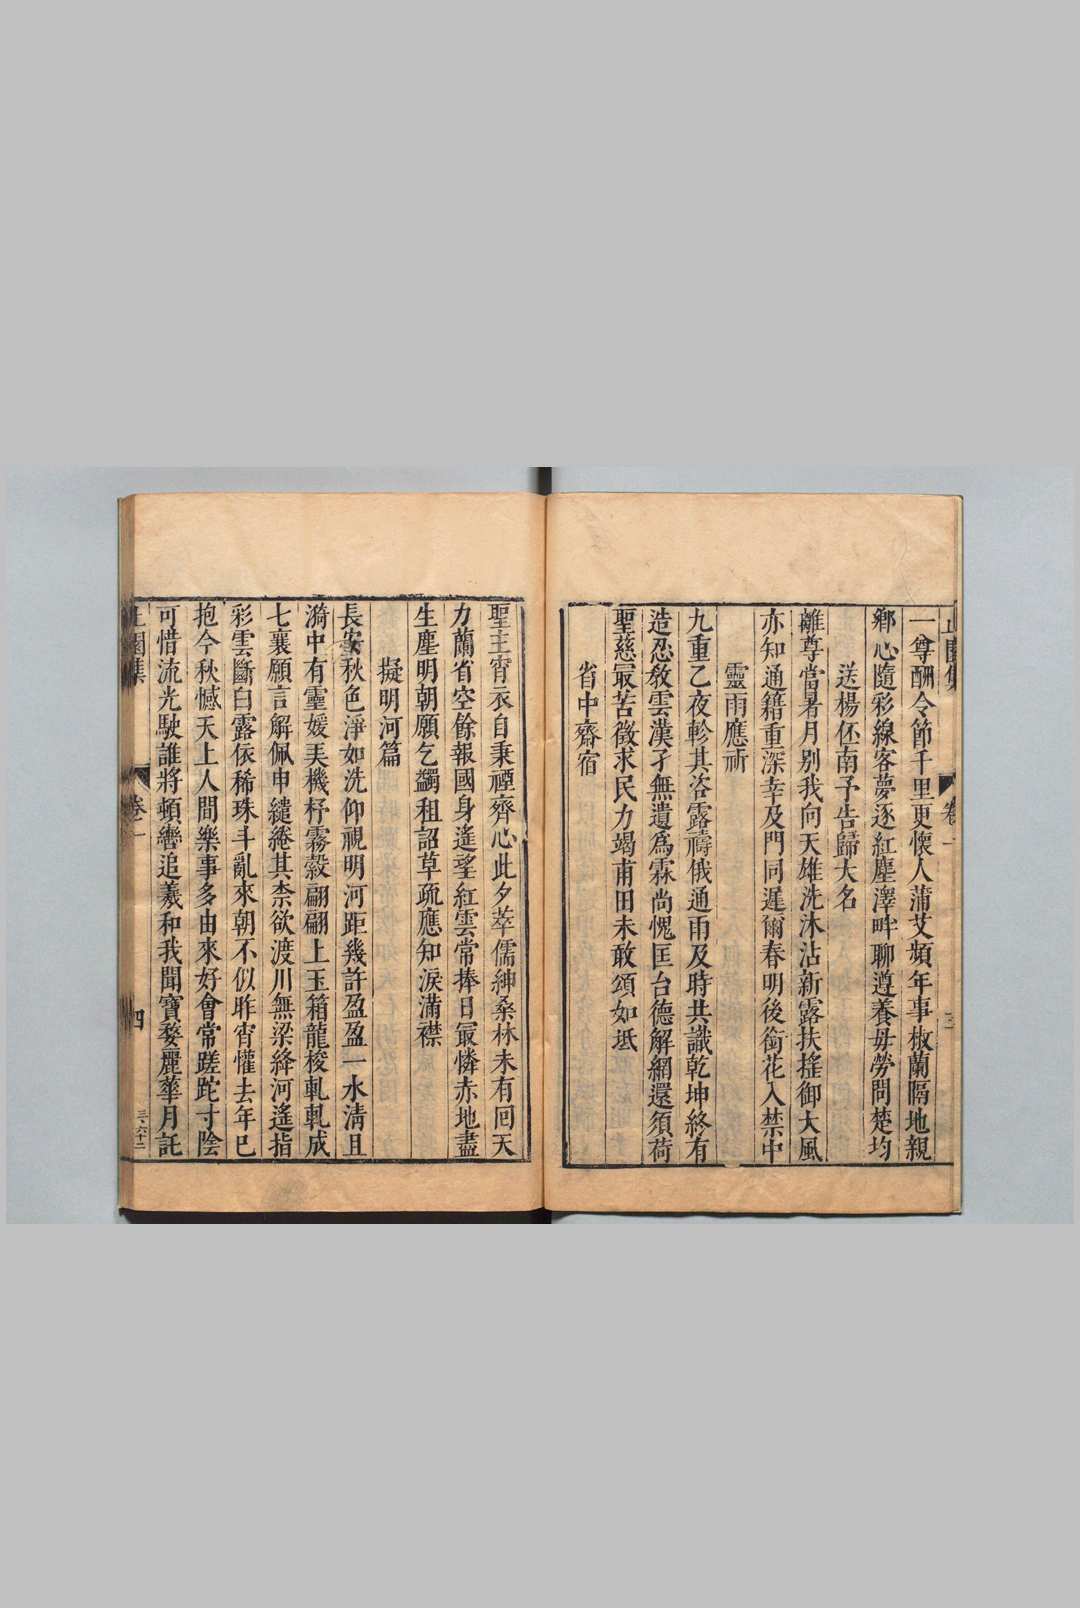 一尊酬令節千里更懷人蒲艾頻年事椒蘭隔地親
鄉心隨彩線客夢逐紅塵澤畔聊遵養毋勞問楚均
送楊伾南予告歸大名
離尊當暑月別我向天雄洗沐沾新露扶搖御大風
亦知通籍重深幸及門同遲爾春明後銜花入禁中
靈雨應祈
九重乙夜軫其咨露禱俄通雨及時共識乾坤終有
造忍教雲漢孑無遺爲霖尚愧匡台德解網還須荷
聖慈最苦徵求民力竭甫田未敢頌如坻
省中齋宿
聖主宵衣自秉禋齊心此夕萃儒紳桑林未有回天
力蘭省空餘報國身遙望紅雲常捧日最憐赤地盡
生塵明朝願乞蠲租詔草疏應知淚滿襟
擬明河篇
長安秋色淨如洗仰視明河距幾許盈盈一水清且
漪中有靈媛美機杼霧縠翩翩上玉箱龍梭軋軋成
七襄願言解佩申繾綣其柰欲渡川無梁絳河遙指
彩雲斷白露依稀珠斗亂來朝不似昨宵懽去年已
抱今秋憾天上人間樂事多由來好會常蹉跎寸陰
可惜流光駛誰將頓轡追羲和我聞寶婺麗華月託
卷一
四
三、六十二